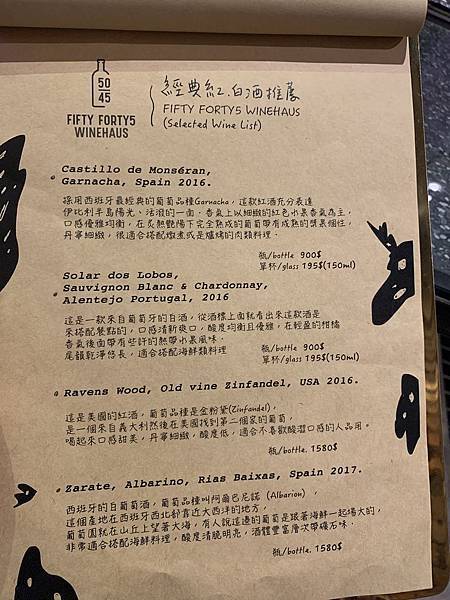 50
45
FIFTY FORTY5
WINEHAUS
經典紅.白酒推薦
FIFTY FORTY5 WINEHAUS
(Selected Wine List)
Castillo de Monséran,
Garnacha, Spain 2016.
採用西班牙最經典的葡萄品種Garnacha，這款紅酒充分表達
伊比利半島陽光、活潑的一面。香氣上以細緻的紅色水果香氣為主，
口感優雅均衡，在炙熱艷陽下完全熟成的葡萄帶有成熟的漿果個性，
丹寧細緻，很適合搭配燉煮或是爐烤的肉類料理。
瓶/bottle 900$
單杯/glass 195$(150ml)
Solar dos Lobos,
Sauvignon Blanc & Chardonnay,
Alentejo Portugal, 2016
這是一款來自葡萄牙的白酒，從酒標上面就看出來這款酒是
來搭配餐點的，口感清新爽口，酸度均衡且優雅，在輕盈的柑橘
香氣後面帶有些許的熱帶水果風味，
尾韻乾淨悠長，適合搭配海鮮類料理
瓶/bottle 900$
單杯/glass 195$(150ml)
Ravens Wood, Old vine Zinfandel, USA 2016.
這是美國的紅酒，葡萄品種是金粉黛(Zinfandel)，
是一個來自義大利然後在美國找到第二個家的葡萄，
喝起來口感甜美，丹寧細緻，酸度低，適合不喜歡酸澀口感的人品用。
瓶/bottle. 1580$
Zarate, Albarino, Rias Baixas, Spain 2017.
西班牙的白葡萄酒，葡萄品種叫阿爾巴尼諾（Albarion），
這個產地在西班牙西北部靠近大西洋的地方，
葡萄園就在山丘上望著大海，有人說這邊的葡萄是跟著海鮮一起場大的，
非常適合搭配海鮮料理，酸度清脆明亮，酒體豐富層次帶礦石味。
瓶/bottle. 1580$